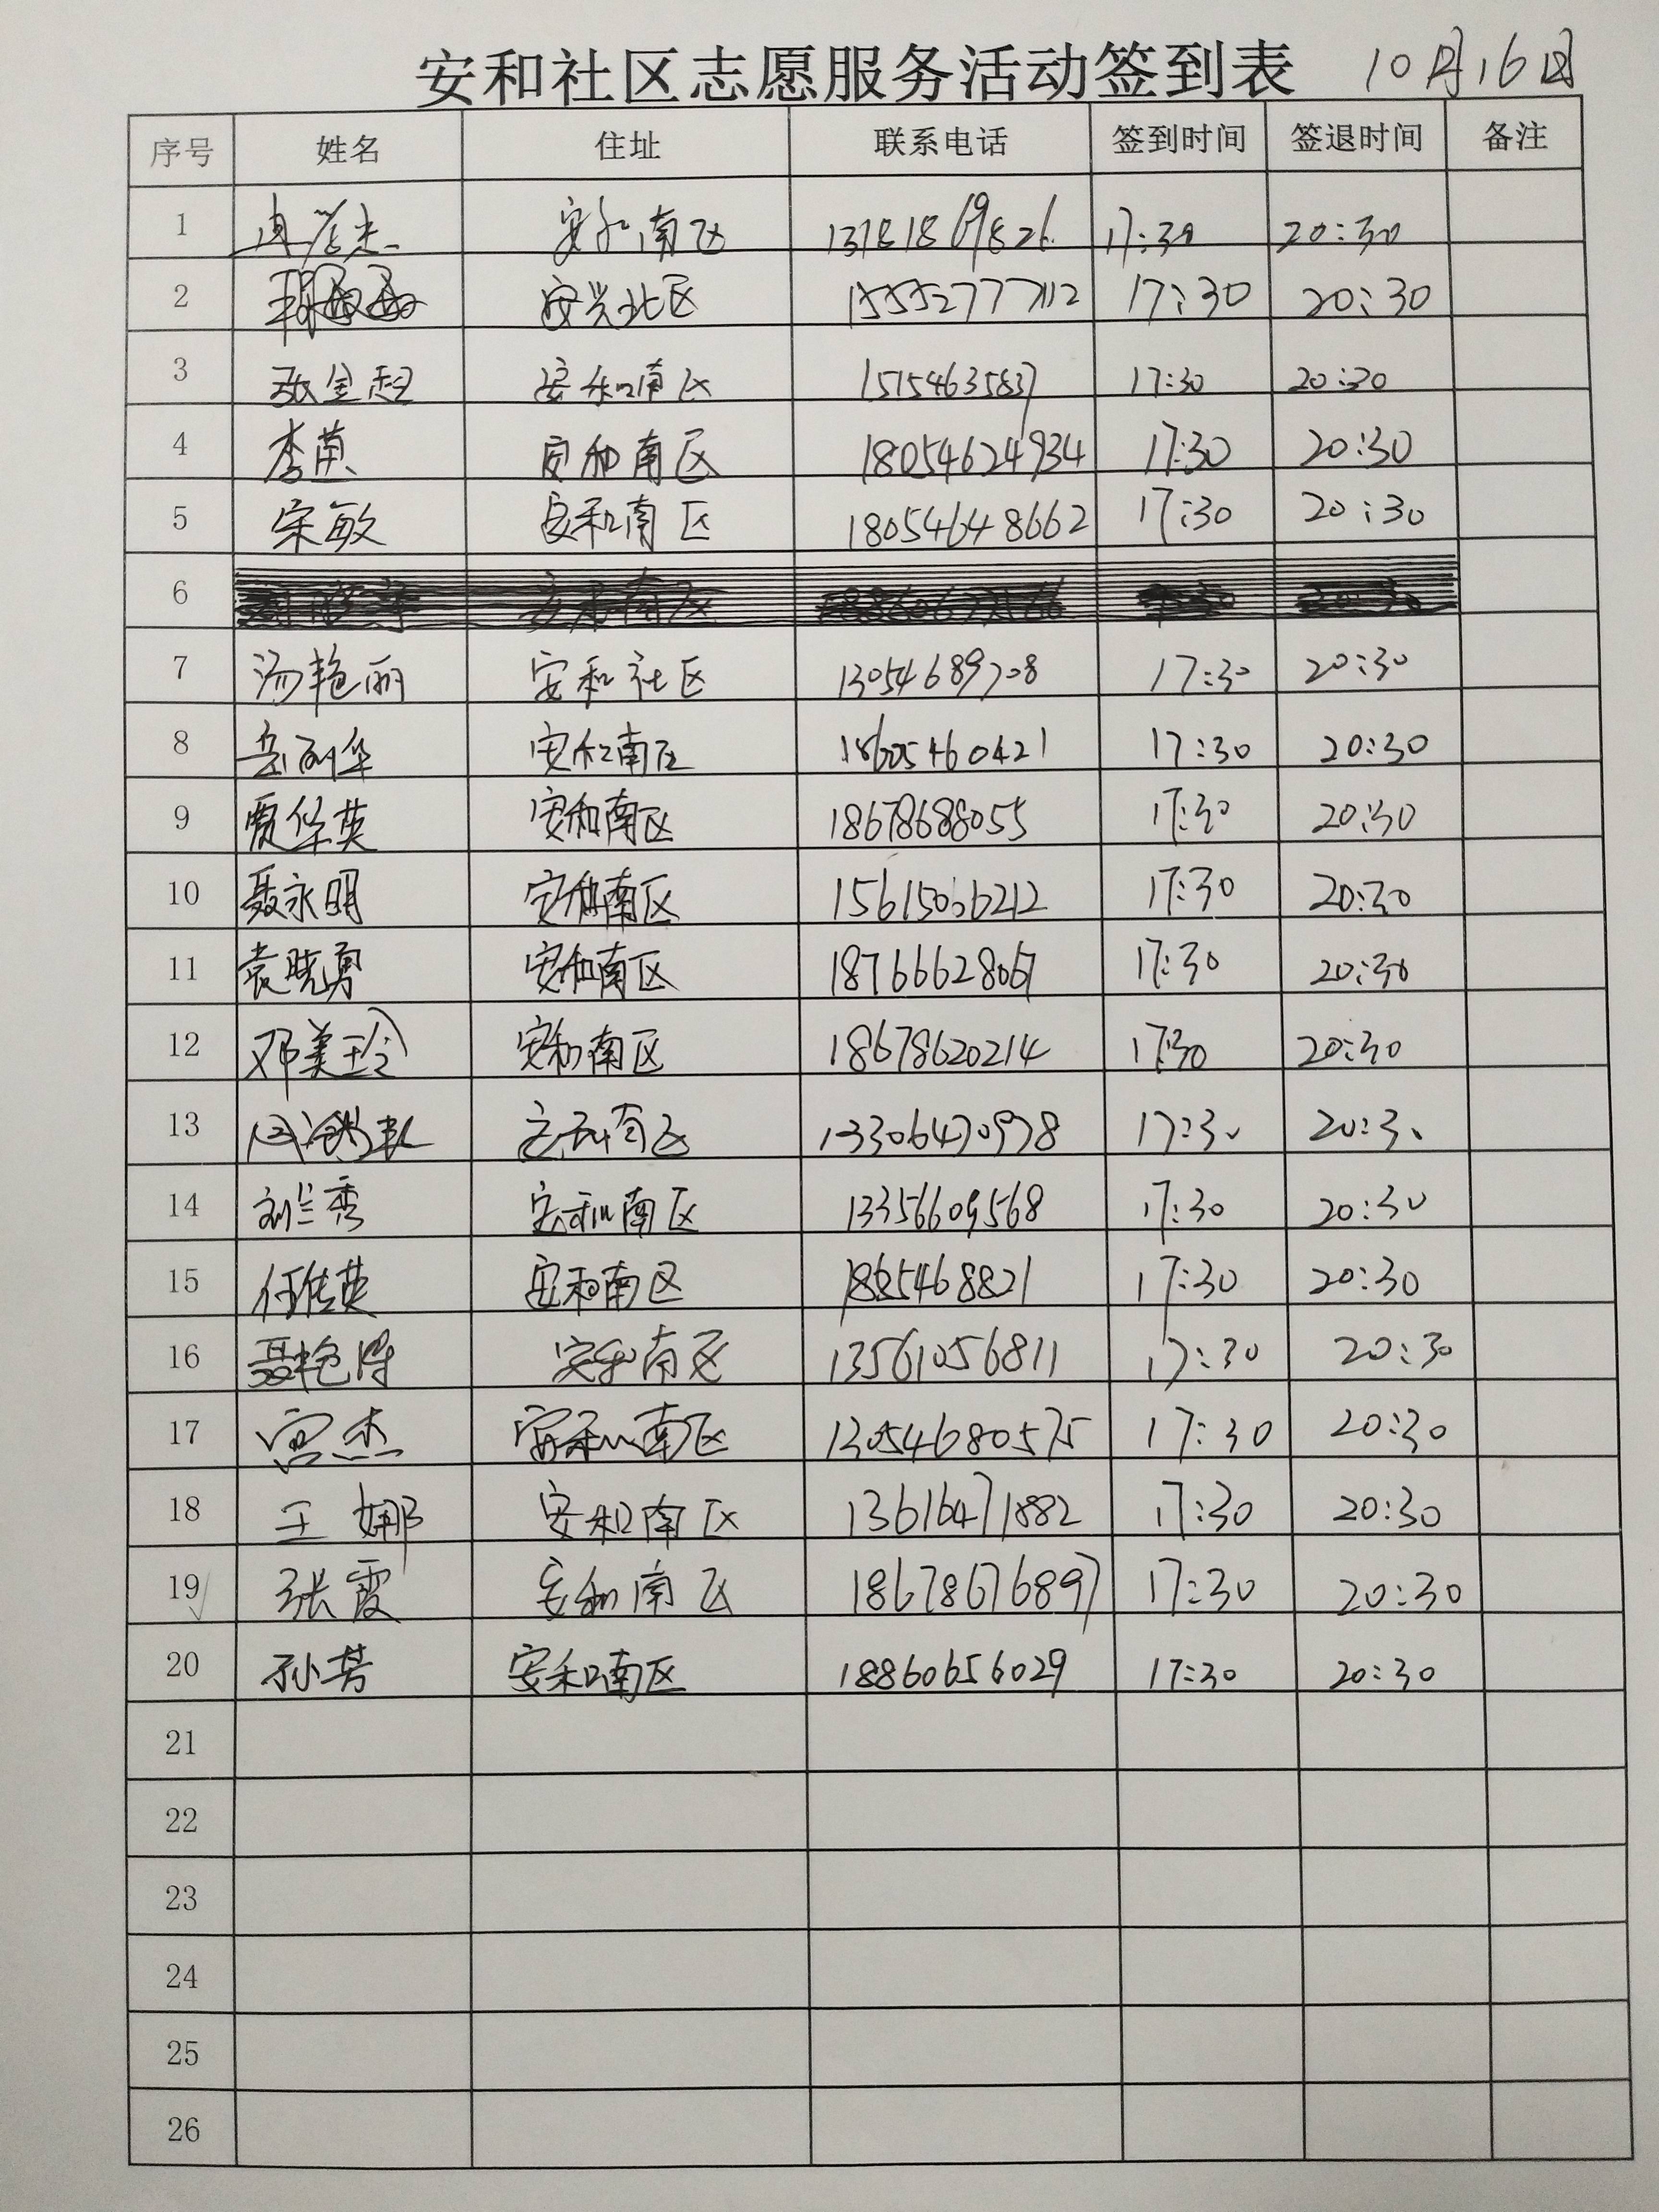 安和社区志愿服务活动签到表 10月16日
序号 姓名 住址 联系电话 签到时间 签退时间 备注
1 安和南区 13781869826 17:30 20:30
2 安兴北区 15552777112 17:30 20:30
3 张金超 安和南区 15154635837 17:30 20:30
4 李英 安和南区 18054624934 17:30 20:30
5 宋敏 安和南区 18054648662 17:30 20:30
6
7 汤艳丽 安和社区 13054689708 17:30 20:30
8 岳丽华 安和南区 18605460421 17:30 20:30
9 贾华英 安和南区 18678688055 17:30 20:30
10 聂永明 安和南区 15615036212 17:30 20:30
11 袁晓勇 安和南区 18766628067 17:30 20:30
12 邓美玲 安和南区 18678620214 17:30 20:30
13 安和南区 13306470978 17:30 20:30
14 刘兰秀 安和南区 13356609568 17:30 20:30
15 任佳英 安和南区 17:30 20:30
16 安和南区 13561056811 17:30 20:30
17 宫杰 安和南区 13054680575 17:30 20:30
18 王娜 安和南区 13616471882 17:30 20:30
19 张霞 安和南区 18678676897 17:30 20:30
20 孙芳 安和南区 18860656029 17:30 20:30
21
22
23
24
25
26